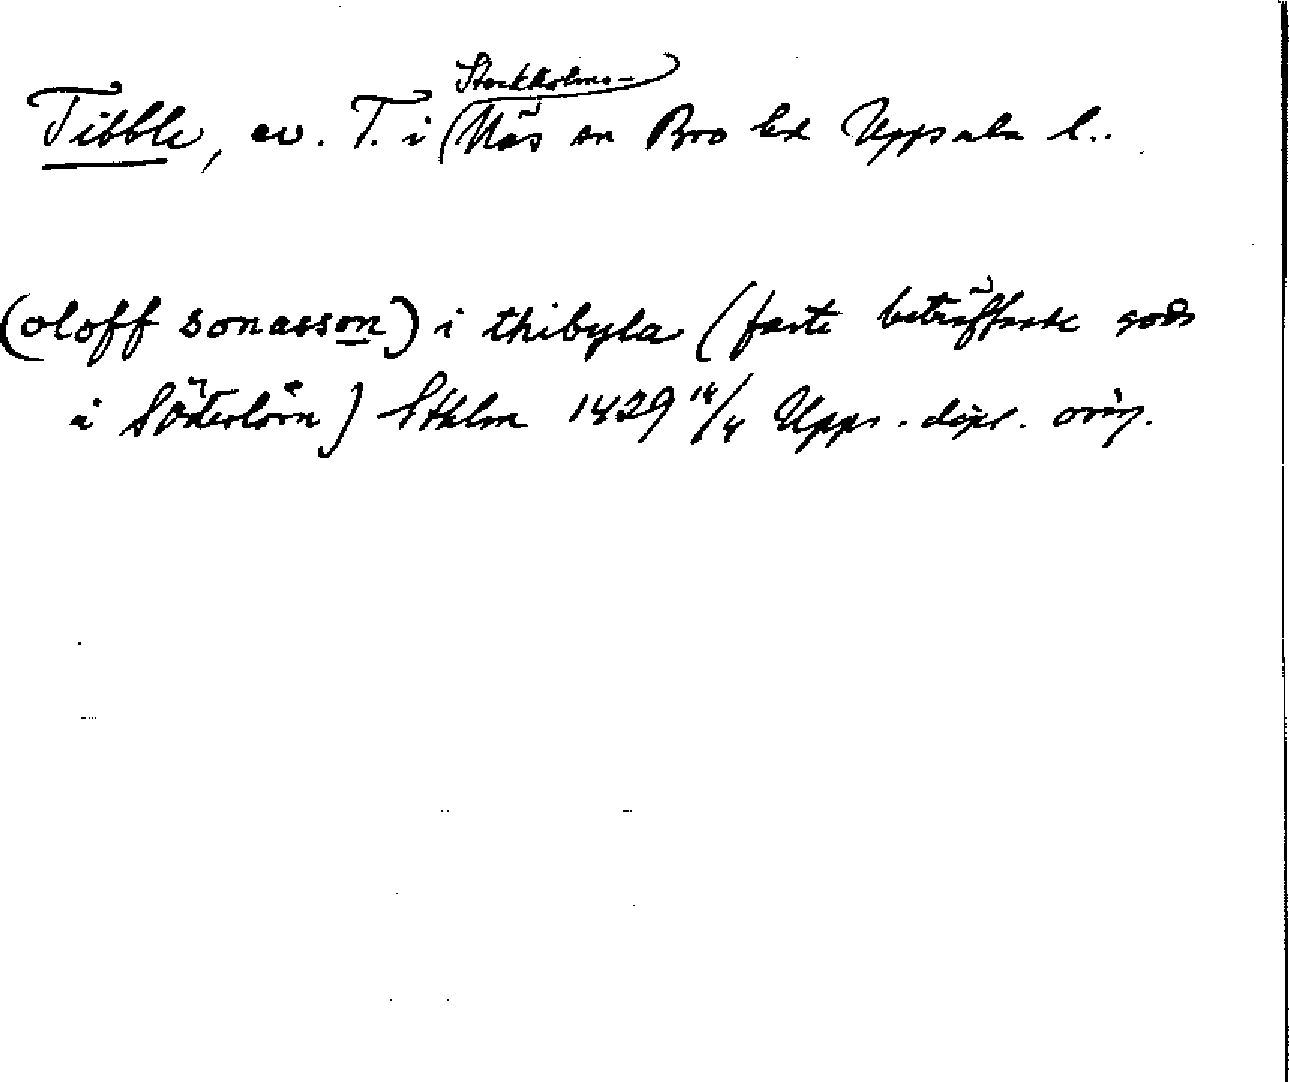 Tibble, ev. T. i (Stockholms-) Näs sn Bro hd Uppsala l..
(oloff sonasson) i thibyla (faste beträffande gods
i Söterlörn) Sthlm 1429 14/4 Upps. dipl. orig.